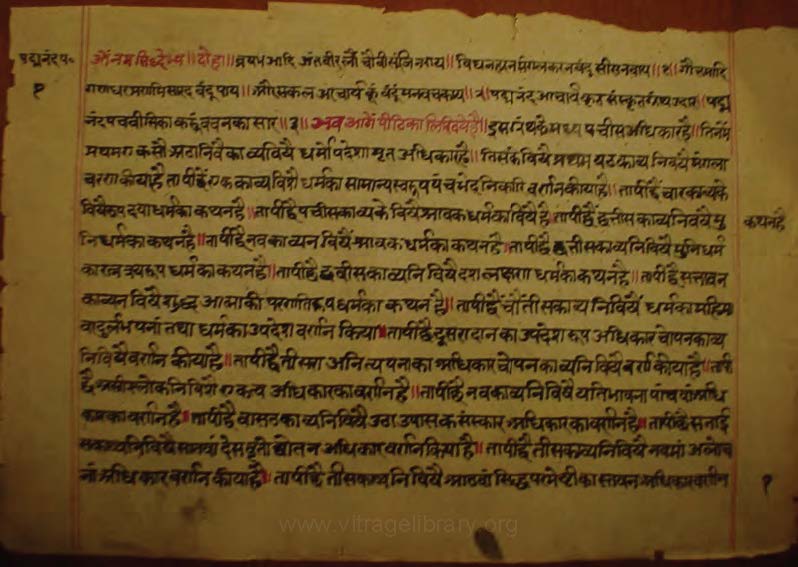 पद्मनंदप०
ओं नमः सिद्धेभ्यः॥ दोहा॥ व्रषभ आदि अंतवीर लौं चौवीसंजिनराय॥ विघनहरन मंगलकरन वंदु सीसनवाय॥१॥ गौत्तमादि
गणधर प्रणमि सारद वंदू पाय॥ श्री सकल आचार्य कूं वंदुं मनवचकाय॥२॥ पद्मनंद आचार्य कृत संस्कृत ग्रंथ उदार॥ पद्म
नंद पचवीसिका करूं वचनका सार॥३॥ अथ आगें पीठिका लिषिये है॥ इस ग्रंथके मध्य पचीस अधिकार है॥ तिनमें
प्रथम एकसौ अठानिवै काव्य विषै धर्मोपदेशामृत अधिकार है॥ तिसके विषै प्रथम षट काव्य नि विषै मंगला
चरण कीया है ता पीछैं एक काव्य विषै धर्मका सामान्य स्वरूप पंच भेदनि करि वर्णन कीया है॥ ता पीछैं चार काव्यके
विषै रूप दया धर्मका कथन है॥ ता पीछैं पचीस काव्यके विषै श्रावक धर्मका विषै है ता पीछैं छत्तीस काव्य नि विषै मु
कथन है
नि धर्मका कथन है॥ ता पीछैं नव काव्यन विषैं श्रावक धर्मका कथन है॥ ता पीछैं छत्तीस काव्य नि विषै मुनि धर्म
का रत्नत्रय रूप धर्मका कथन है॥ ता पीछैं छवीस काव्यनि विषै दश लक्षण धर्मका कथन है॥ ता पीछैं सत्तावन
काव्यन विषै शुद्ध आत्माकी परणति रूप धर्मका कथन है॥ ता पीछैं चौंतीस काव्य नि विषै धर्मका महिमा
वा दुर्लभपनां तथा धर्मका उपदेश वर्णन किया॥ ता पीछैं दूसरा दानका उपदेश रूप अधिकार चोपन काव्य
नि विषै वर्णन कीया है॥ ता पीछैं तीसरा अनित्यपनाका अधिकार चोपन काव्यनि विषै वर्णन कीया है॥ ता पी
छैं असी स्लोकनि विषै एकत्व अधिकारका वर्णन है॥ ता पीछैं नव काव्यनि विषै यति भावना पांचवां अधि
कारका वर्णन है॥ ता पीछैं वासठ काव्यनि विषै छठा उपासक संस्कार अधिकार का वर्णन है॥ ता पीछैं सताई
स काव्य नि विषै सातवां देसवृतोद्योतन अधिकार वर्णन किया है॥ ता पीछैं तीस काव्यनि विषै नवमां आलोच
नां अधिकार वर्णन कीया है॥ ता पीछैं तीस काव्य नि विषै आठवां सिद्ध परमेष्टी का स्तवन अधिकार वर्णन
www.vitragelibrary.org